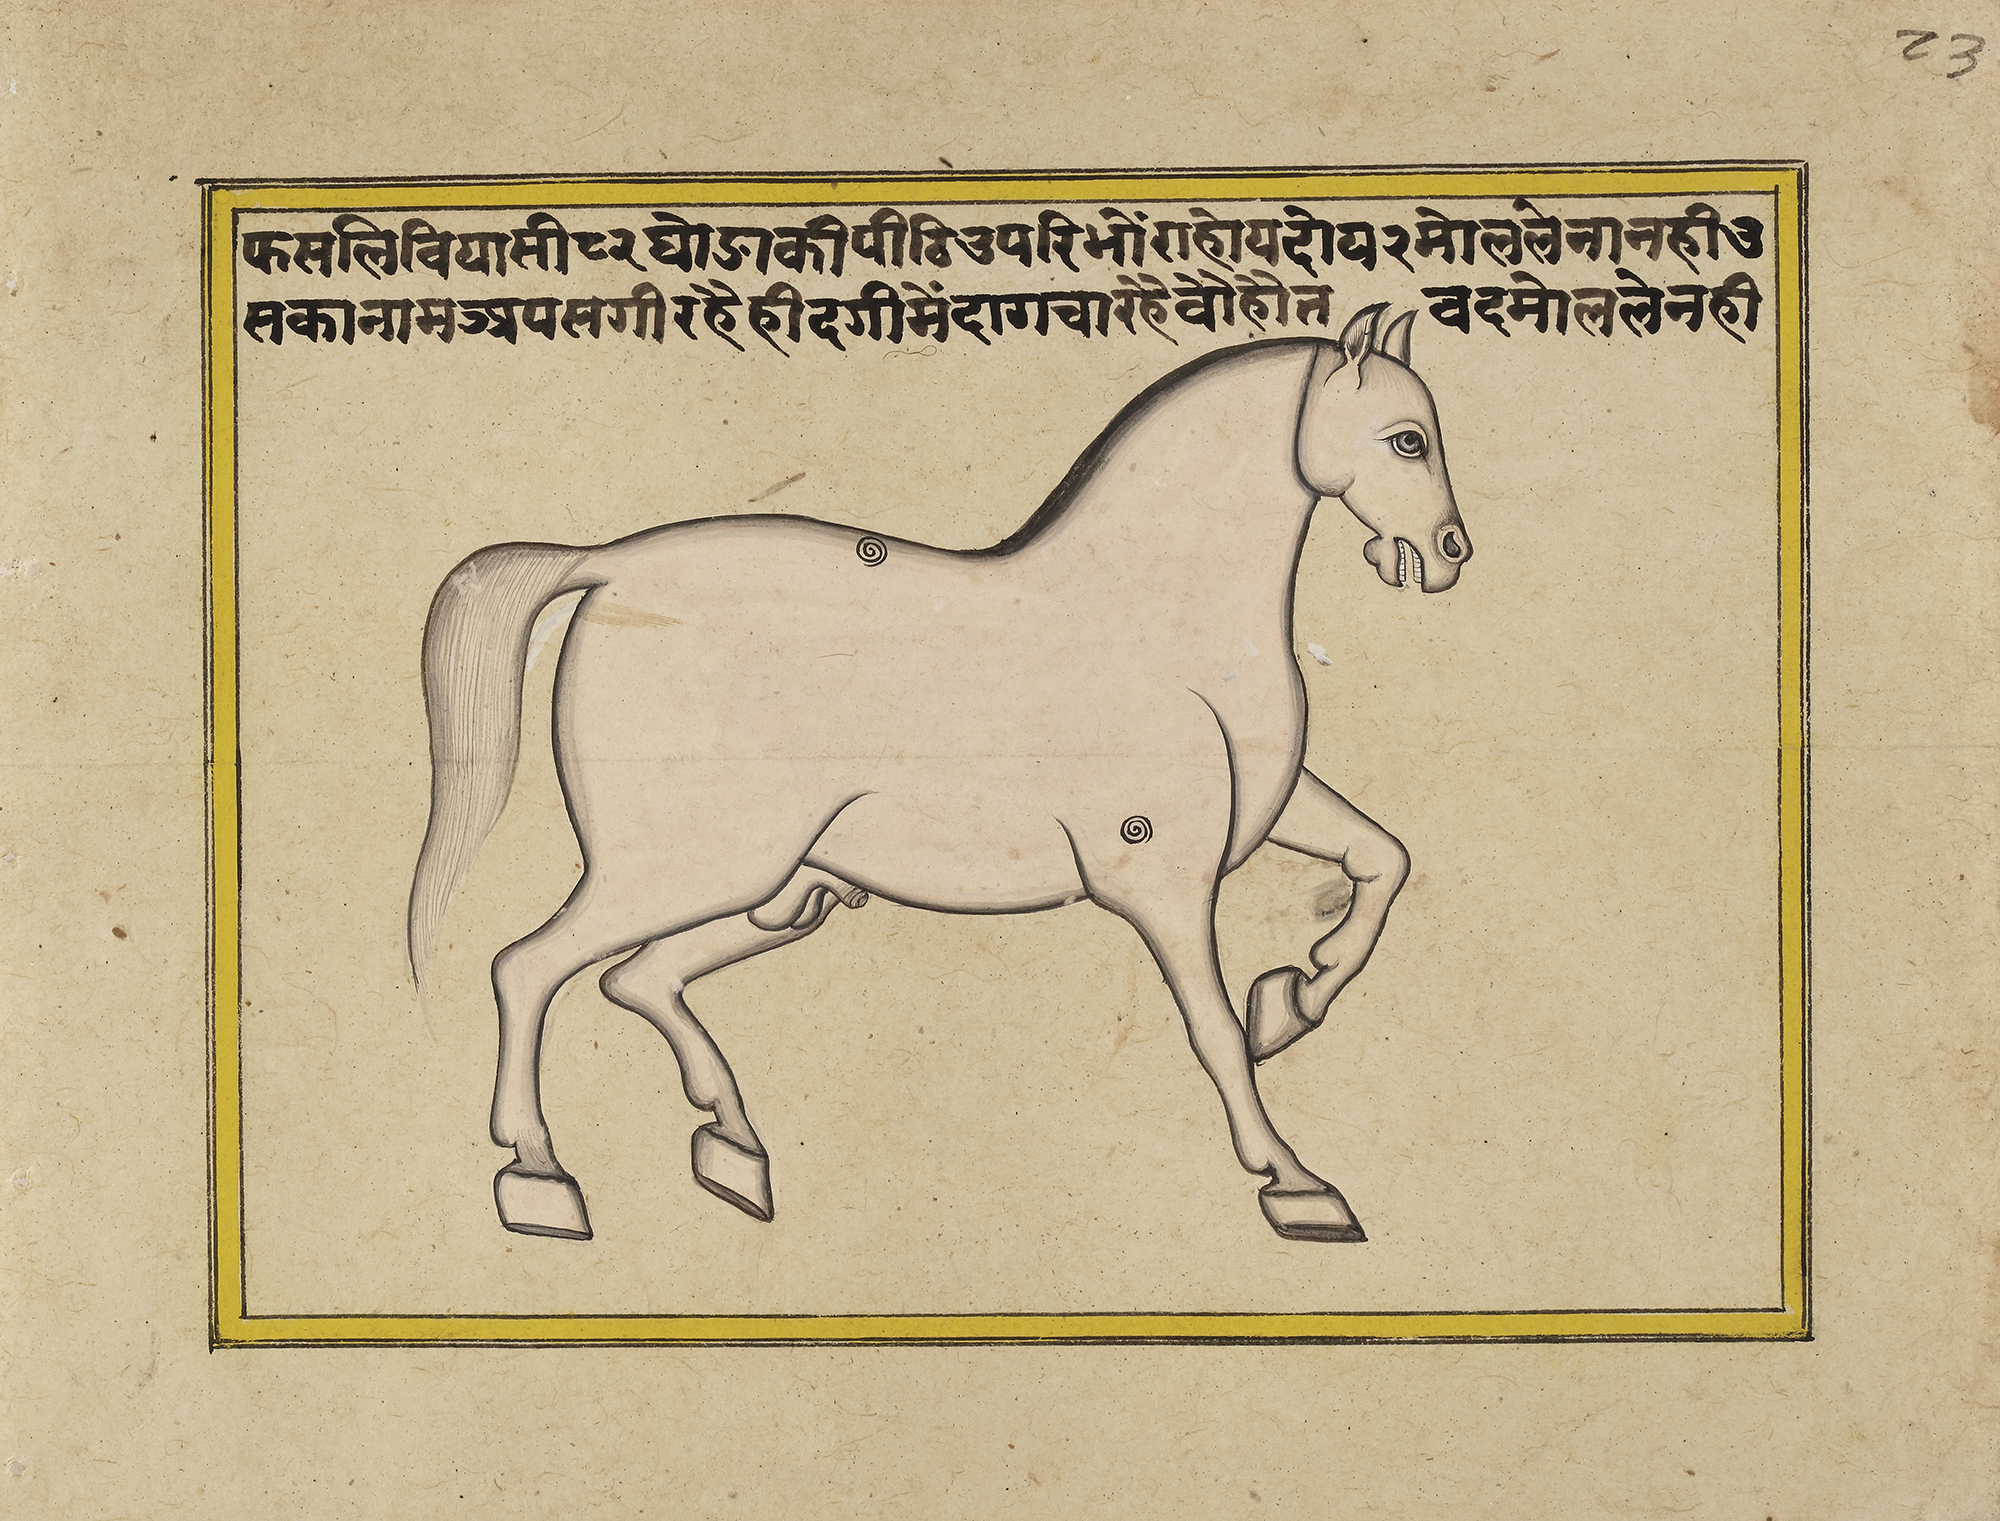 23
फसलि वियासी ८२ घोङा की पीठि उपरि भोंरा होय दोय २ मोल लेना नही उ
स का नाम अपसगी रहै ही दगी में दाग चा रहै वोहोत वद मोल ले नही